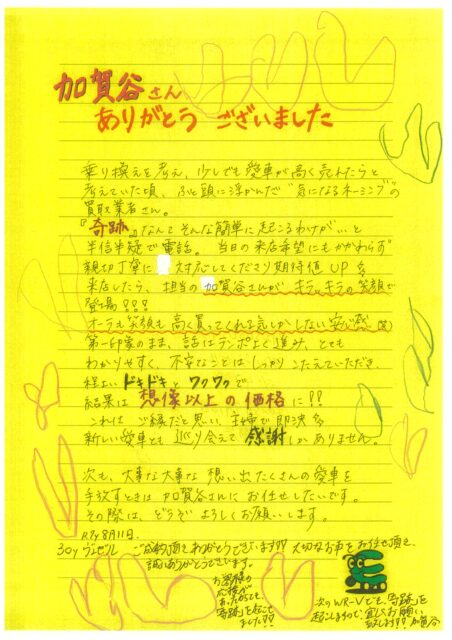 加賀谷さん
ありがとう ございました
乗り換えを考え、少しでも愛車が高く売れたらと
考えていた頃、ふと頭に浮かんだ"気になるネーミング"の
買取業者さん。
『奇跡』なんてそんな簡単に起こるわけが…と
半信半疑で電話。 当日の来店希望にもかかわらず
親切丁寧に 対応してくださり期待値UP
来店したら、担当の加賀谷さんが キラッキラの笑顔で
登場!!!
オーラも笑顔も高く買ってくれる気しかしない安心感
第一印象のまま、話はテンポよく進み、とても
わかりやすく、不安なことは しっかり こたえていただき、
程よい ドキドキと ワクワクで
結果は 想像以上の価格に!!
これは ご縁だと思い、主婦で即決
新しい愛車とも 巡り会えて 感謝しかありません。
次も、大事な大事な 想い出たくさんの愛車を
手放すときは 加賀谷さんに お任せしたいです。
その際は、どうぞ よろしくお願いします。
R7y8月11日。
30y ヴェゼル ご成約頂きありがとうございます!!! 大切なお車をお任せ頂き、
誠にありがとうございます。
お客様の
応援が
あったからこそ、
「奇跡」を起こして
ました!!!
次のWR-Vでも「奇跡」を
起こしますので、宜しくお願い
致します!! 加賀谷